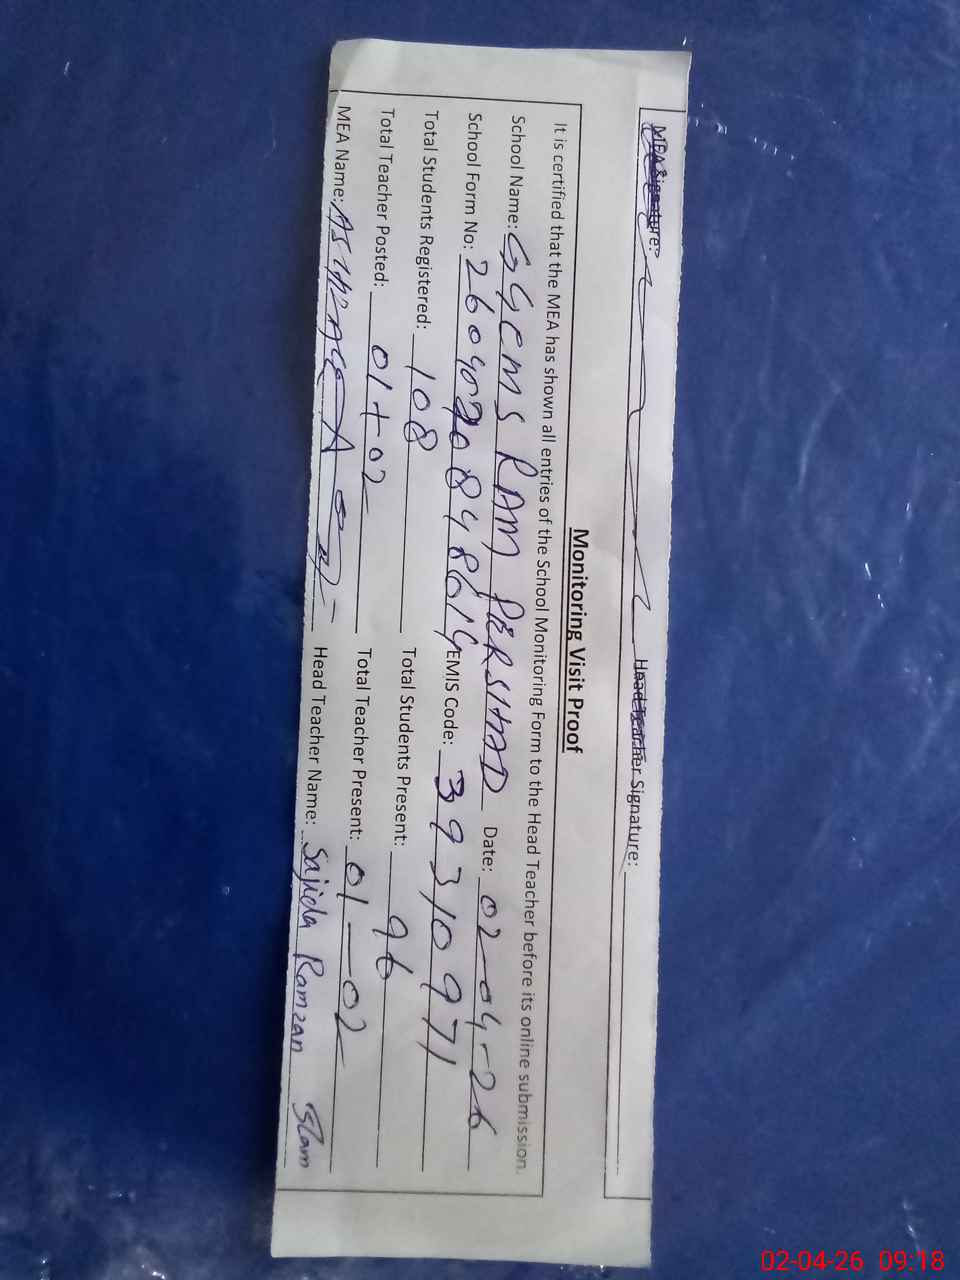 MEA Signature: Head Teacher Signature:
Monitoring Visit Proof
It is certified that the MEA has shown all entries of the School Monitoring Form to the Head Teacher before its online submission.
School Name: GGCMS RAM PERSHAD Date: 02-04-26
School Form No: EMIS Code: 39310971
Total Students Registered: 108 Total Students Present: 96
Total Teacher Posted: 01+02 Total Teacher Present: 01-02
MEA Name: Head Teacher Name: Sajida Ramzan
02-04-26 09:18